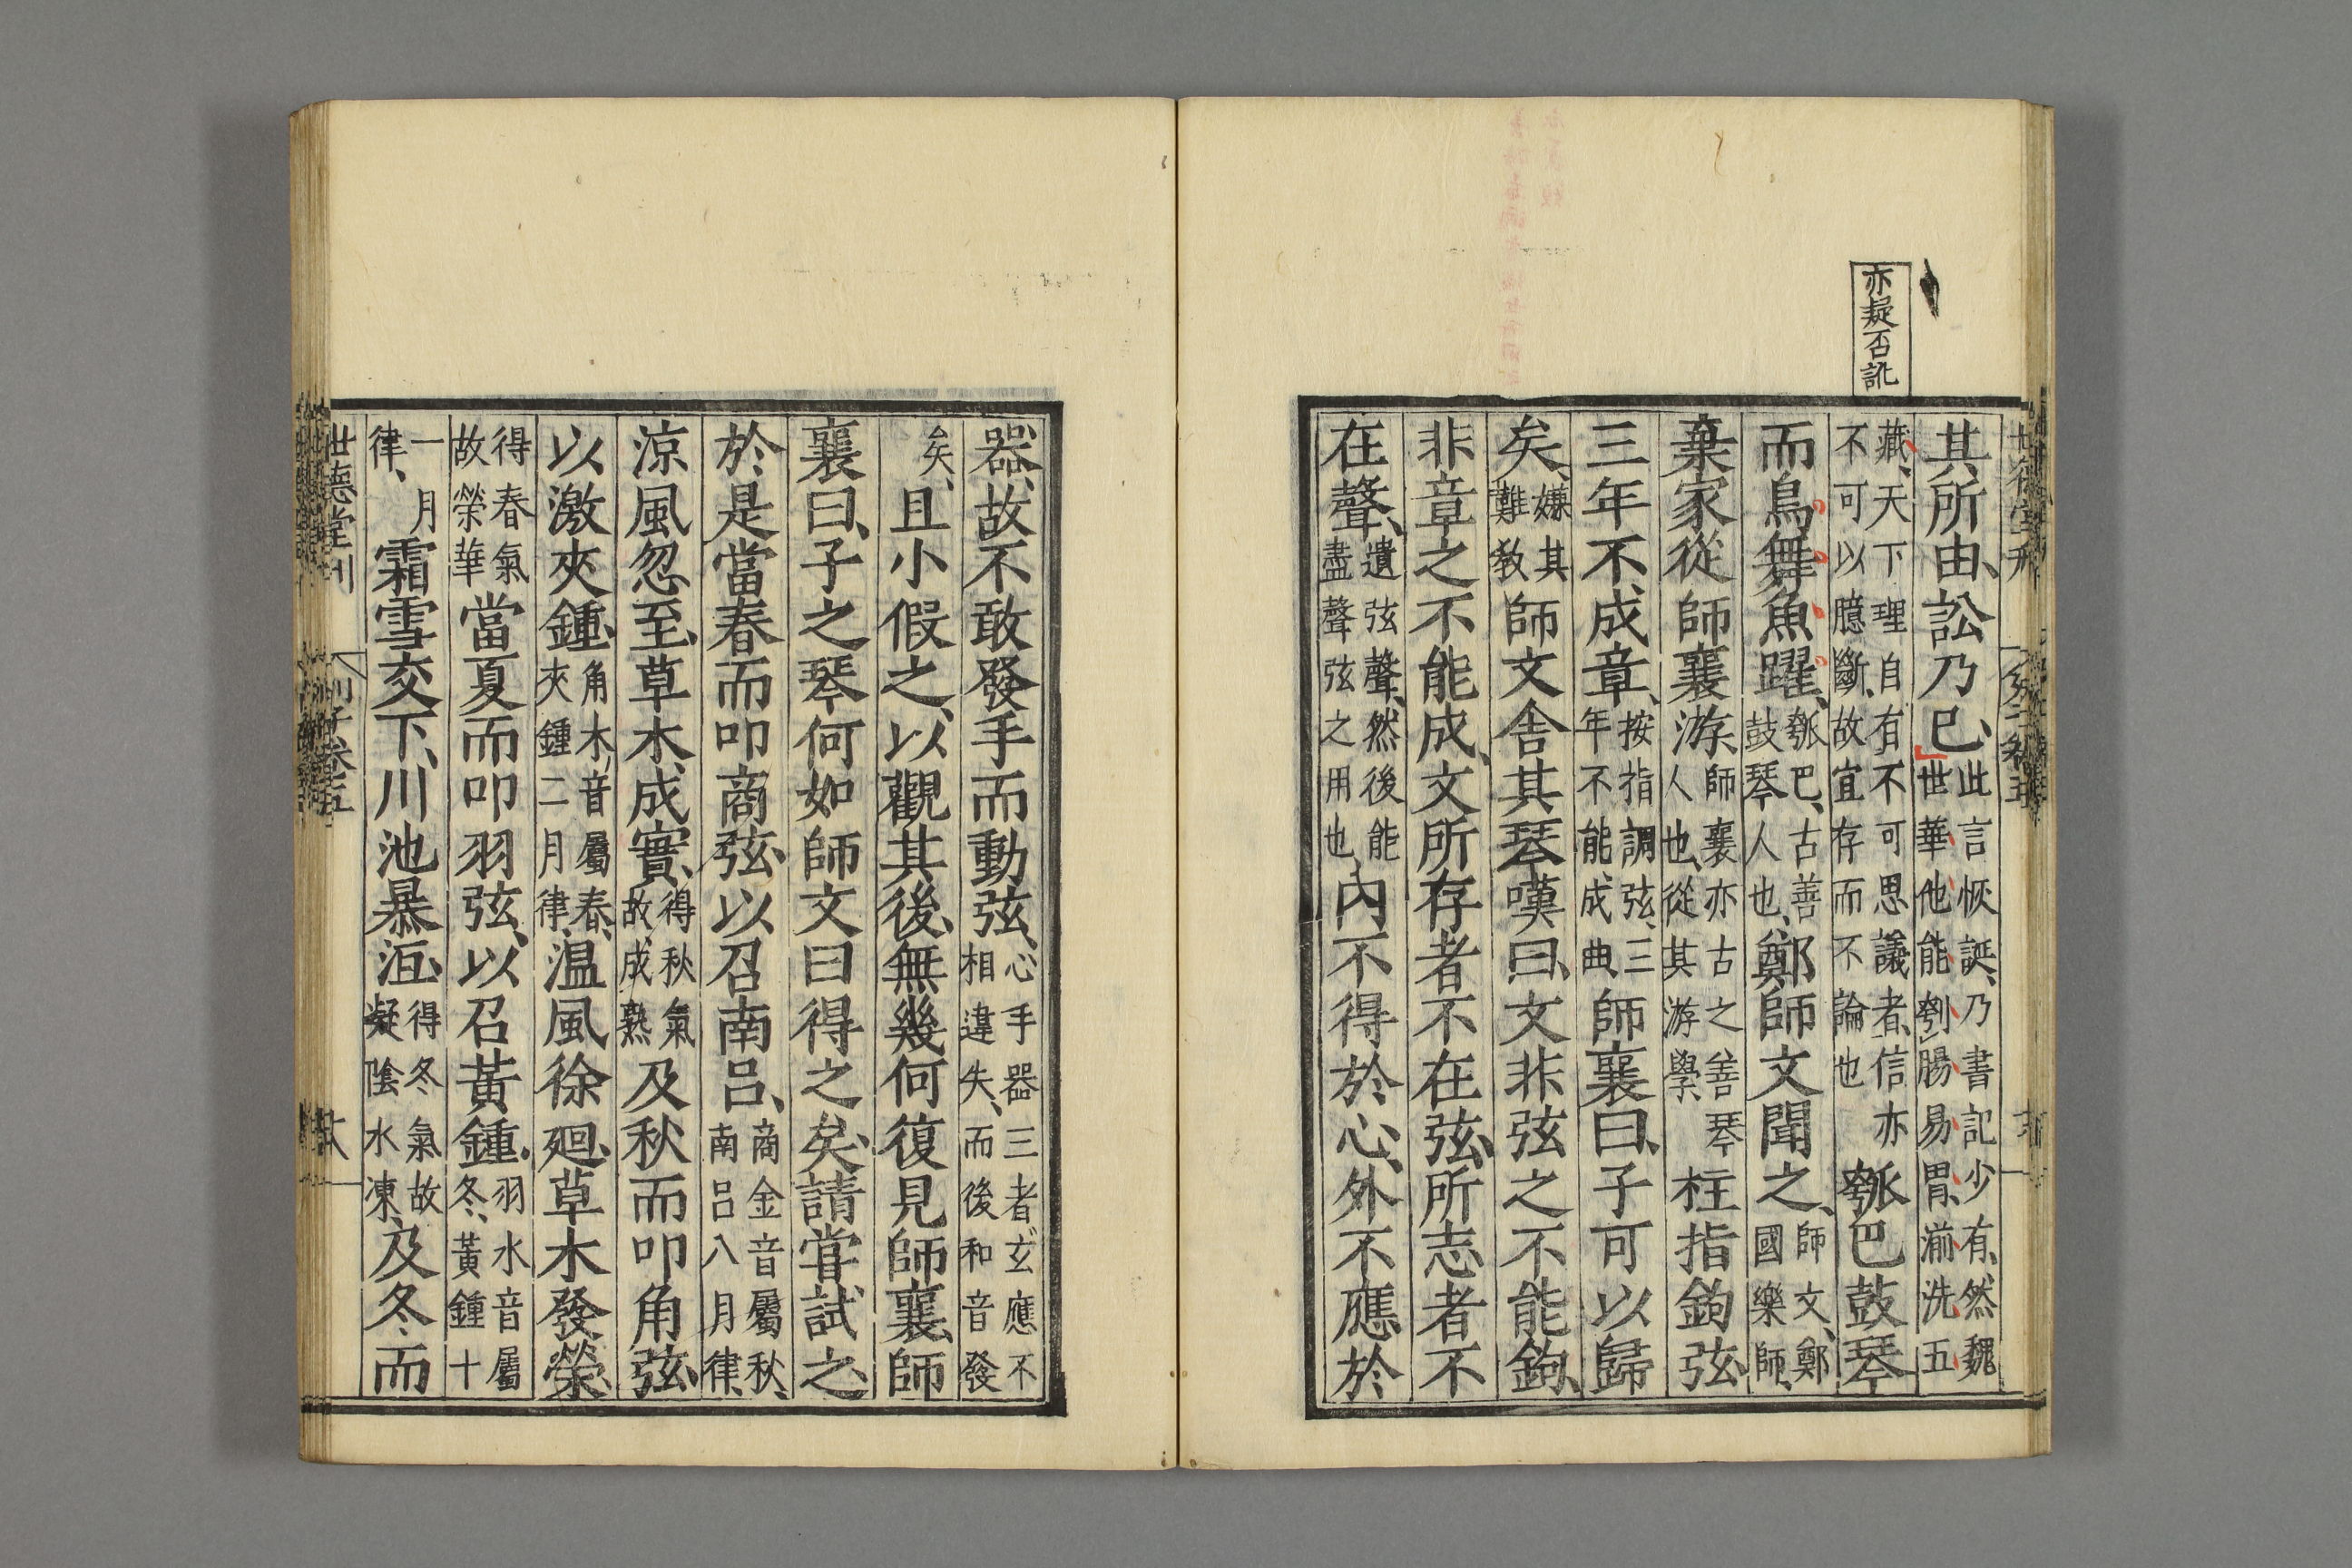 亦疑否訛
其所由、訟乃已、此言恢誕、乃書記少有、然魏世華他能刳腸易胃、湔洗五
藏、天下理自有不可思議者、信亦不可以臆斷、故宜存而不論也瓠巴鼓琴
而鳥舞魚躍、瓠巴、古善鼓琴人也、鄭師文聞之、師文、鄭國樂師、
棄家從師襄游、師襄亦古之善琴人也、從其游學、柱指鉤弦
三年不成章、按指調弦、三年不能成曲、師襄曰、子可以歸
矣、嫌其難敎師文舍其琴嘆曰、文非弦之不能鉤、
非章之不能成、文所存者不在弦、所志者不
在聲、遺弦聲、然後能盡聲弦之用也、內不得於心、外不應於
器、故不敢發手而動弦、心手器三者玄應不相違失、而後和音發
矣、且小假之、以觀其後、無幾何復見師襄、師
襄曰、子之琴何如師文曰得之矣、請嘗試之、
於是當春而叩商弦、以召南呂、商金音屬秋、南呂八月律、
涼風忽至、草木成實、得秋氣故成熟及秋而叩角弦
以激夾鍾、角木音屬春、夾鍾二月律、溫風徐廻、草木發榮、
得春氣故榮華當夏而叩羽弦、以召黃鍾、羽水音屬冬、黃鍾十
一月律、霜雪交下、川池暴沍、得冬氣故凝陰水凍、及冬而
世德堂刊　列子卷五　六